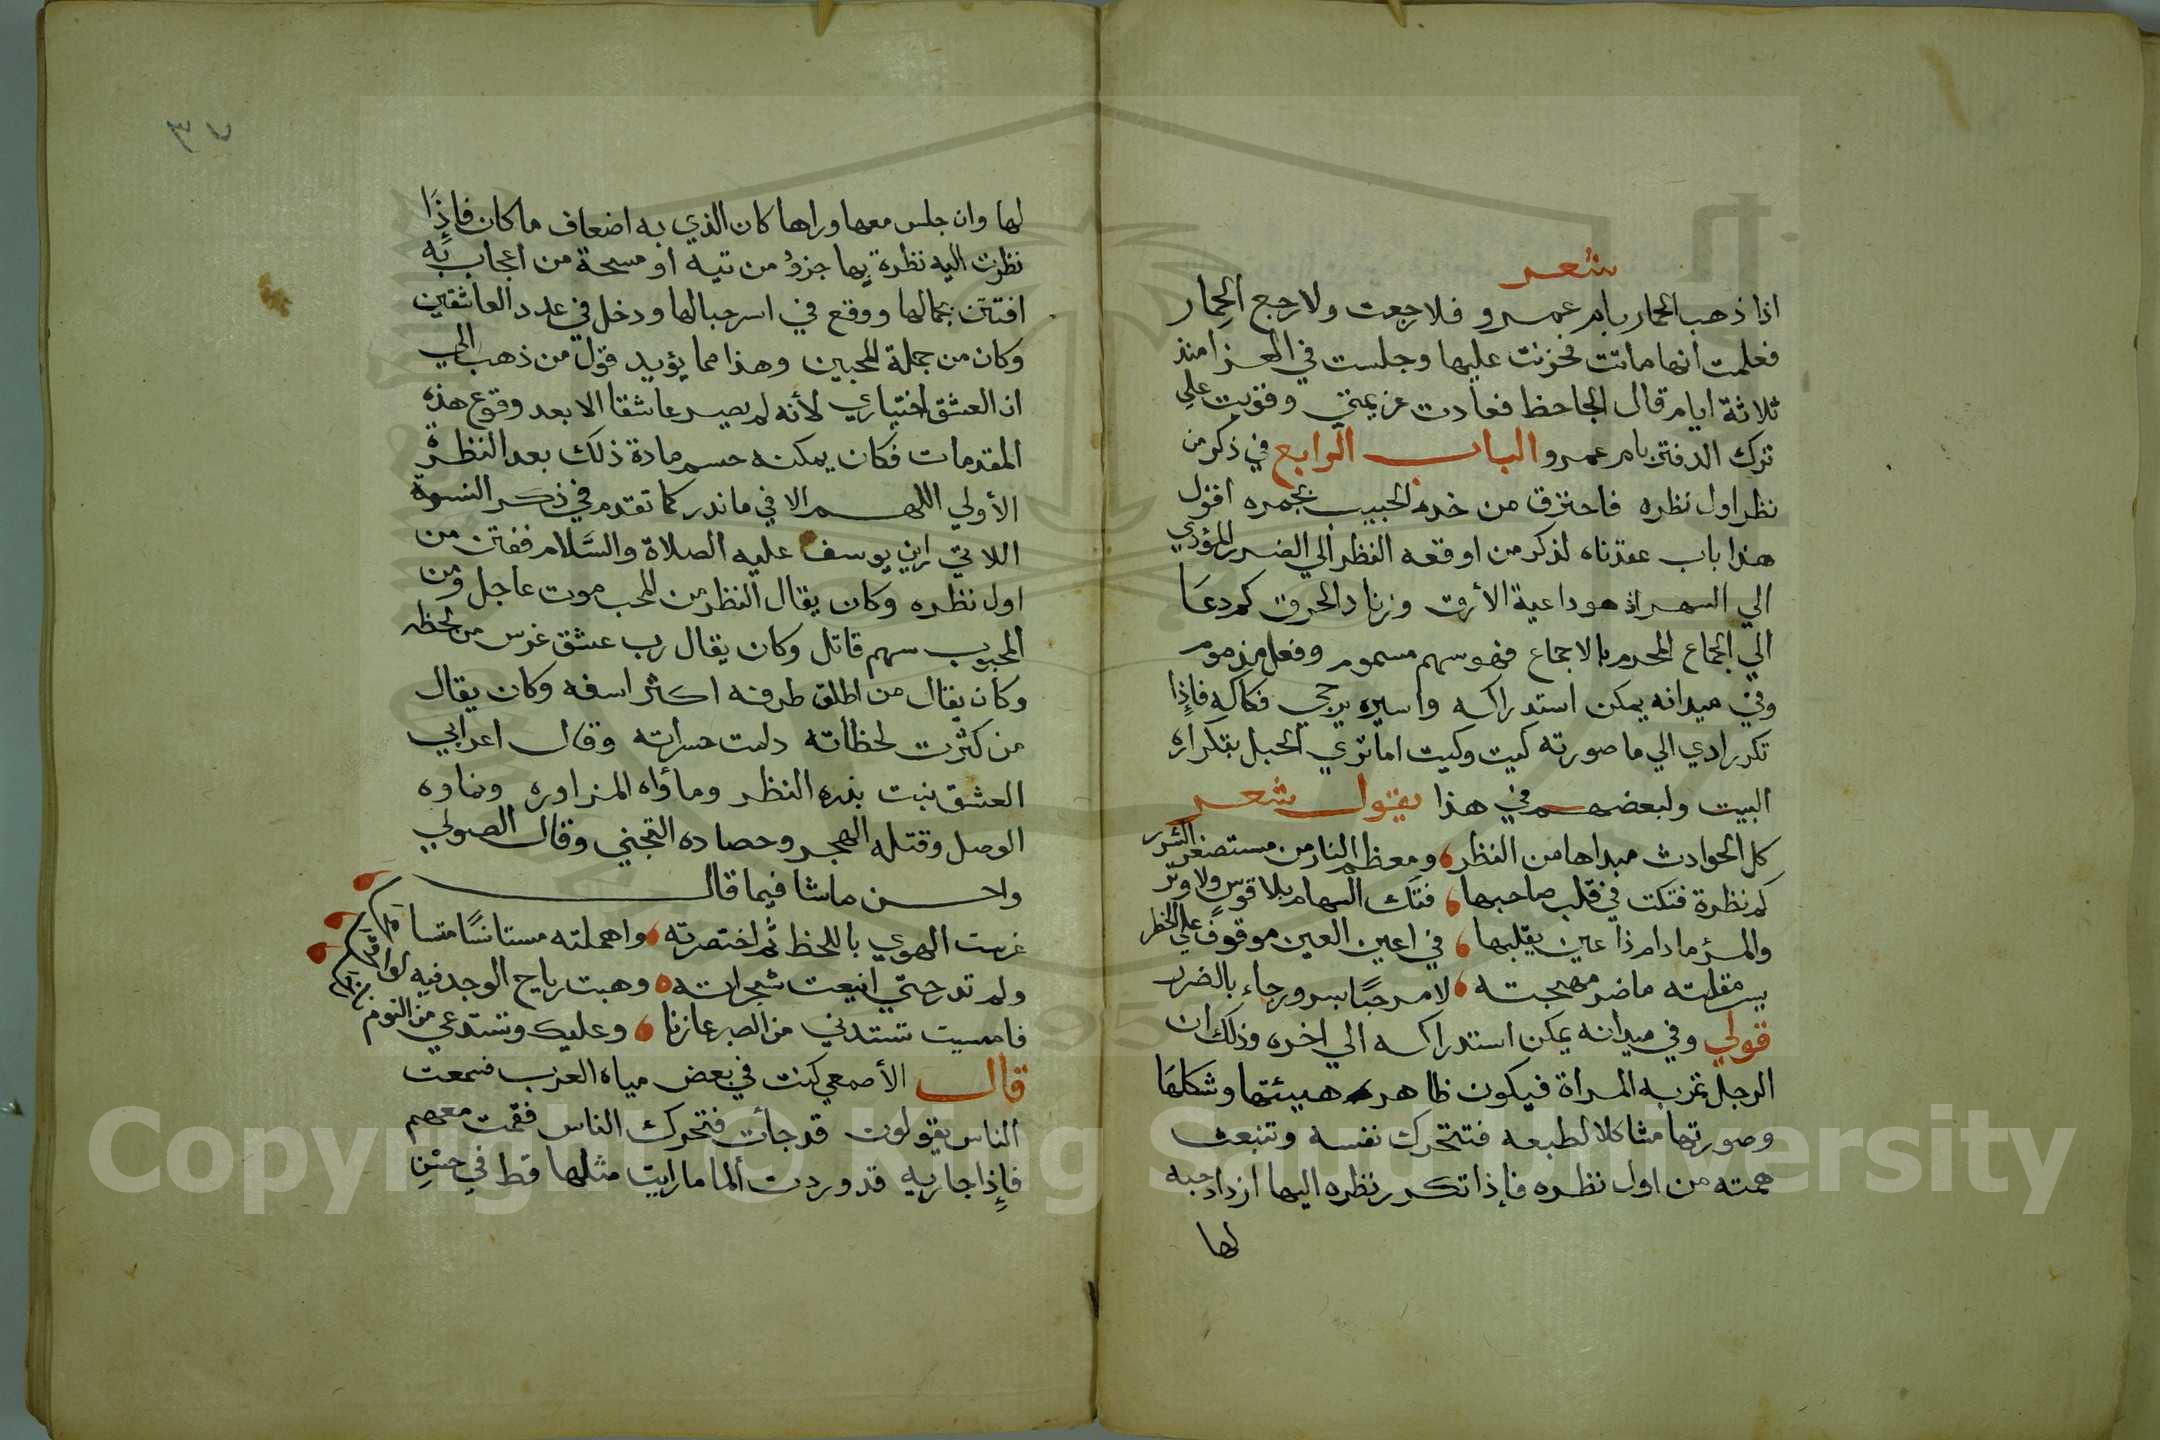 شعر
اذا ذهب الحمار بام عمرو فلا رجعت ولا رجع الحمار
فعلمت انها ماتت فحزنت عليها وجلست في العزا منذ
ثلاثة ايام قال الجاحظ فعادت عزيمتي وقويت علي
ترك الدفتر بام عمرو الباب الرابع في ذكر من
نظر اول نظره فاحترق من خده الحبيب بجمره اقول
هذا باب عقدناه لذكر من اوقعه النظر الي الضرر المؤدي
الي السهر اذ هو داعية الأرق وزناد الحرق كم دعا
الي الجماع المحرم بالاجماع فهو سهم مسموم وفعل مذموم
وفي ميدانه يمكن استدراكه واسيره يرجي فكاكه فإذا
تكرر ادي الي ما صورته كيت وكيت اما تري الحبل بتكراره
البيت ولبعضهم في هذا يقول شعر
كل الحوادث مبداها من النظر ومعظم النار من مستصغر الشرر
كم نظرة فتكت في قلب صاحبها فتك السهام بلا قوس ولا وتر
والمرؤ ما دام ذا عين يقلبها في اعين العين موقوف علي الخطر
يسر مقلته ما ضر مهجته لا مرحبا بسرور جاء بالضرر
قولي وفي ميدانه يمكن استدراكه الي اخره وذلك ان
الرجل تمر به المراة فيكون ظاهر هيئتها وشكلها
وصورتها مشاكلا لطبعه فتتحرك نفسه وتنبعث
همته من اول نظره فإذا تكرر نظره اليها ازداد حبه
لها
٣٧
لها وان جلس معها وراها كان الذي به اضعاف ما كان فإذا
نظرت اليه نظرة بها جزؤ من تيه او مسحة من اعجاب به
افتتن بجمالها ووقع في اسر حبالها ودخل في عدد العاشقين
وكان من جملة المحبين وهذا مما يؤيد قول من ذهب الي
ان العشق اختياري لأنه لم يصير عاشقا الا بعد وقوع هذه
المقدمات فكان يمكنه حسم مادة ذلك بعد النظرة
الأولي اللهم الا في ما ندر كما تقدم في ذكر النسوة
اللاتي راين يوسف عليه الصلاة والسلام ففتن من
اول نظره وكان يقال النظر من المحب موت عاجل ومن
المحبوب سهم قاتل وكان يقال رب عشق غرس من لحظه
وكان يقال من اطلق طرفه اكثر اسفه وكان يقال
من كثرت لحظاته دامت حسراته وقال اعرابي
العشق نبت بذره النظر وماؤاه المزاوره ونماوه
الوصل وقتله الهجر وحصاده التجني وقال الصولي
واحسن ماشا فيما قال
غرست الهوي باللحظ ثم احتقرته واهملته مستانسا متسا
ولم تدر حتي انيعت شجراته وهبت رياح الوجد فيه لواقح
فامسيت تستدني من الصبر عازبا وعليك وتستدعي من النوم
قال الأصمعي كنت في بعض مياه العرب فسمعت
الناس يقولون قد جأت فتحرك الناس فقمت معهم
فإذا جاريه قد وردت ألما ما رايت مثلها قط في حسن
Copyright © King Saud University